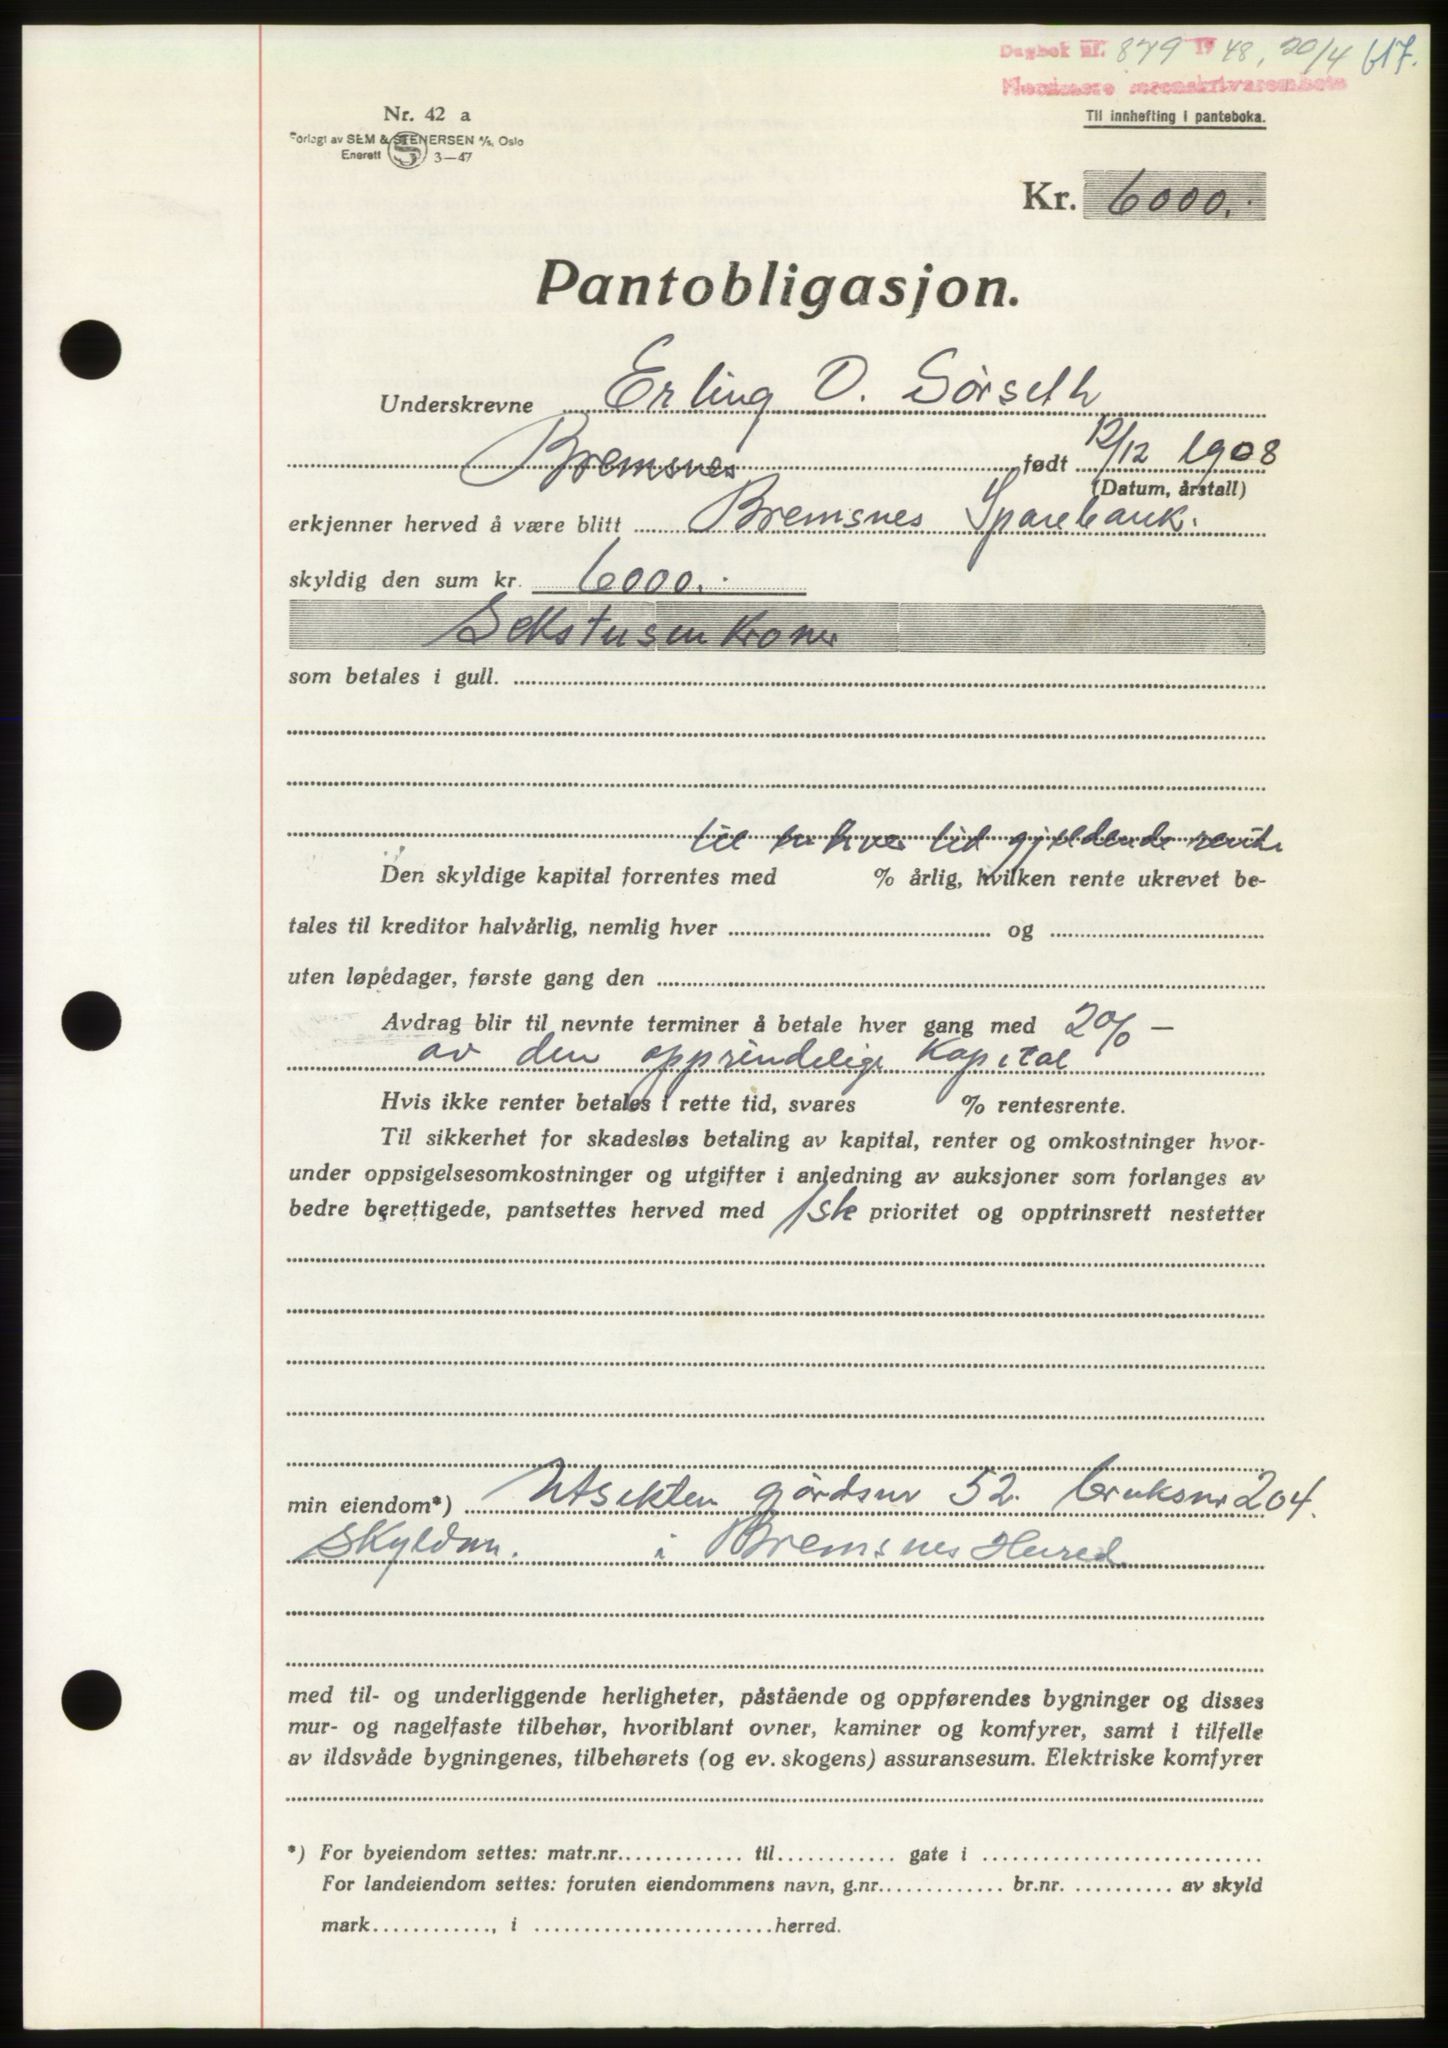 Dagbok nr. 879 1948, 20/4 617.
Nordmøre sorenskriverembete
Nr. 42 a
Forlagt av SEM & STENERSEN A/S, Oslo
Enerett 3—47
Til innhefting i panteboka.
Kr. 6000.-
Pantobligasjon.
Underskrevne Erling O. Sörseth
Bremsnes født 12/12 1908
(Datum, årstall)
erkjenner herved å være blitt Bremsnes Sparebank.
skyldig den sum kr. 6000.-
Sekstusen kroner
som betales i gull.
til en hver tid gjeldende rente
Den skyldige kapital forrentes med % årlig, hvilken rente ukrevet be-
tales til kreditor halvårlig, nemlig hver og
uten løpedager, første gang den
Avdrag blir til nevnte terminer å betale hver gang med 2% —
av den opprindelige Kapital
Hvis ikke renter betales i rette tid, svares % rentesrente.
Til sikkerhet for skadesløs betaling av kapital, renter og omkostninger hvor-
under oppsigelsesomkostninger og utgifter i anledning av auksjoner som forlanges av
bedre berettigede, pantsettes herved med 1ste prioritet og opptrinsrett nestetter
min eiendom*) Utsikten gårdsnr 52. bruksnr 204.
Skyldm. i Bremsnes Herred
med til- og underliggende herligheter, påstående og oppførendes bygninger og disses
mur- og nagelfaste tilbehør, hvoriblant ovner, kaminer og komfyrer, samt i tilfelle
av ildsvåde bygningenes, tilbehørets (og ev. skogens) assuransesum. Elektriske komfyrer
*) For byeiendom settes: matr.nr. til gate i
For landeiendom settes: foruten eiendommens navn, g.nr. br.nr. av skyld
mark , i herred.